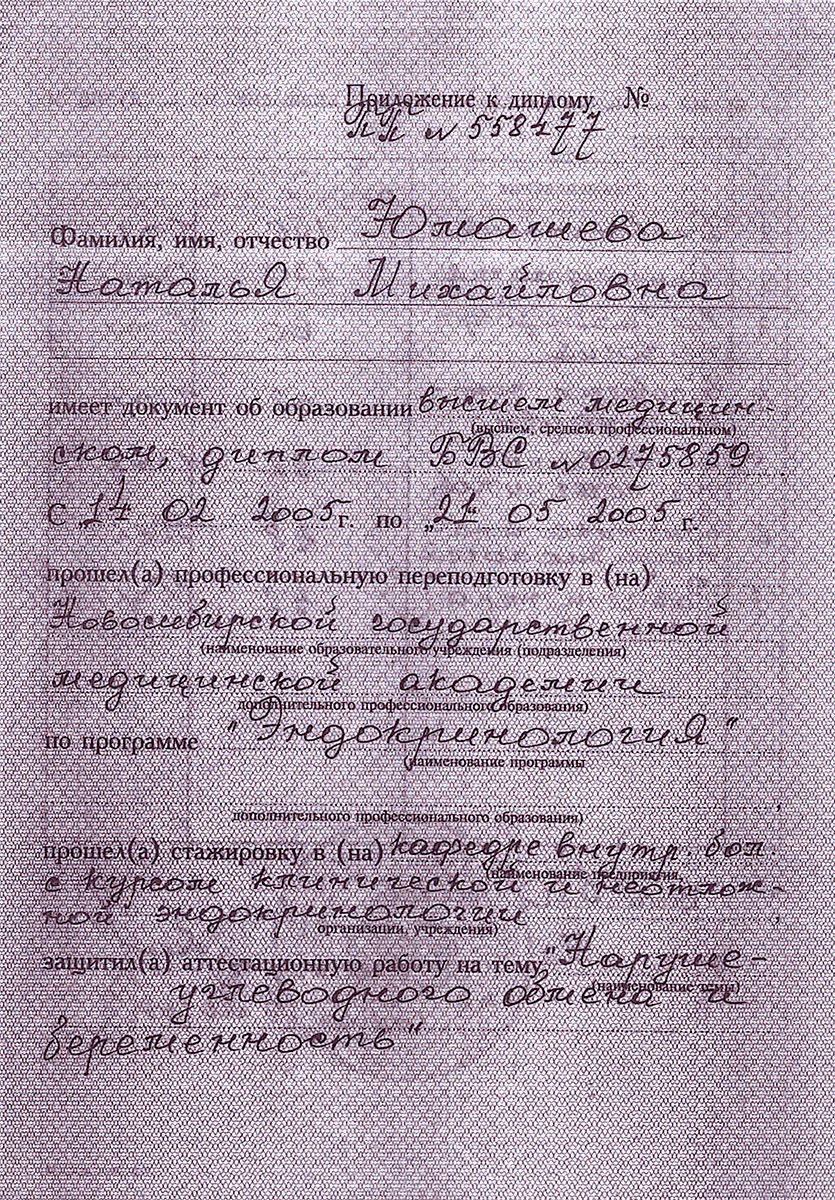 Приложение к диплому №
ПП № 558477
Фамилия, имя, отчество Юмашева
Наталья Михайловна
имеет документ об образовании высшем медицин-
(высшем, среднем профессиональном)
ском, диплом БВС №0275859
С „14 02 2005 г. по „21" 05 2005 г.
прошел(а) профессиональную переподготовку в (на)
Новосибирской государственной
(наименование образовательного учреждения (подразделения)
медицинской академии
дополнительного профессионального образования)
по программе "Эндокринология"
(наименование программы
дополнительного профессионального образования)
прошел(а) стажировку в (на) кафедре внутр. бол.
(наименование предприятия,
с курсом клинической и неотлож-
ной эндокринологии
организации, учреждения)
защитил(а) аттестационную работу на тему "Наруше-
(наименование темы)
углеводного обмена и
беременность"